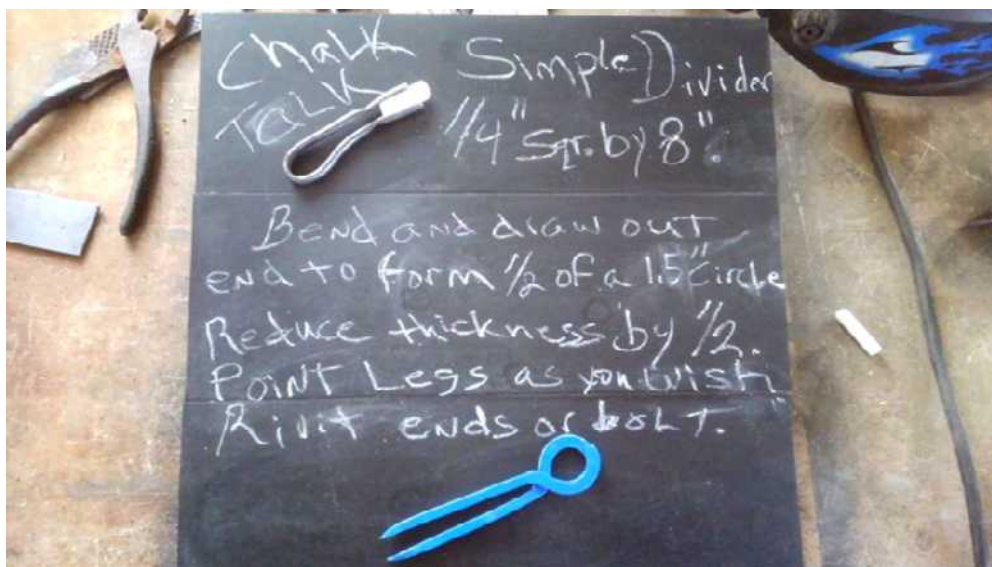 Chalk Simple Divider
Talk 1/4" sqr. by 8".
Bend and draw out
end to form 1/2 of a 1.5" circle
Reduce thickness by 1/2.
Point Legs as you wish
Rivit ends or bolt.